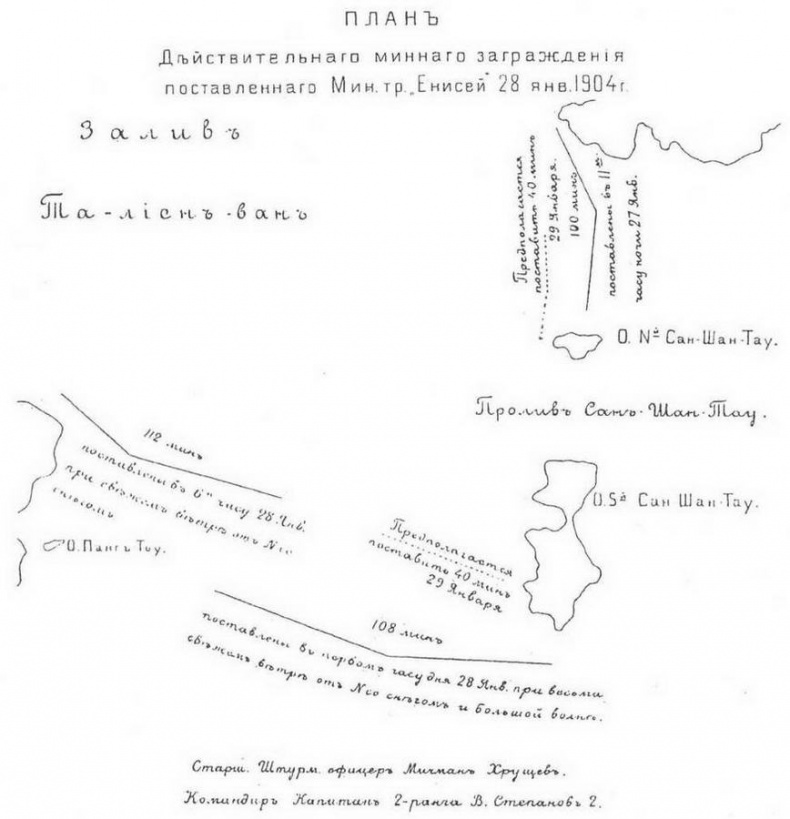 ПЛАНЪ
Дѣйствительнаго миннаго загражденія
поставленнаго Мин. тр. „Енисей" 28 янв. 1904 г.
Заливъ
Та-ліэнъ-ванъ
Предполагается
поставить 40 минъ
29 Января.
100 минъ
поставлены въ 11ом
часу ночи 27 Янв.
О. Nд Сан-Шан-Тау.
Проливъ Санъ-Шан-Тау.
112 минъ
поставлены въ 6м часу 28 Янв.
при свѣжемъ вѣтрѣ отъ N со
снѣгомъ
О. Sд Сан Шан-Тау.
О. Пангъ Тоу.
Предполагается
поставить 40 минъ
29 Января
108 минъ
поставлены въ первомъ часу дня 28 Янв. при весьма
свѣжемъ вѣтрѣ отъ N со снѣгомъ и большой волнѣ.
Старш. Штурм. офицеръ Мичманъ Хрущевъ.
Командиръ Капитанъ 2-ранга В. Степановъ 2.